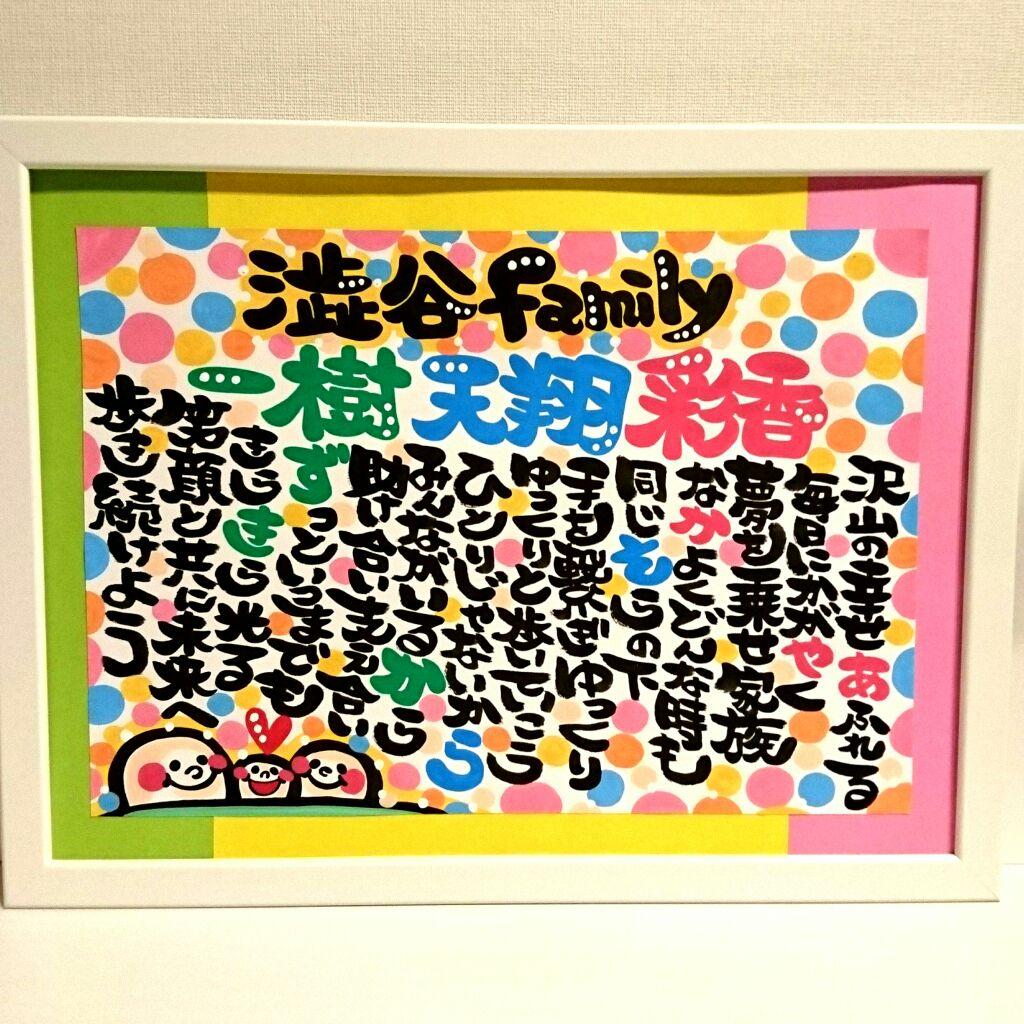 澁谷family
一樹 天翔 彩香
沢山の幸せあふれる
毎日にかがやく
夢を乗せ家族
なかよくどんな時も
同じそらの下
手を繋ぎゆっくり
ゆっくりと歩いていこう
ひとりじゃないから
みんながいるから
助け合い支え合い
ずっといつまでも
きらきら光る
笑顔と共に未来へ
歩き続けよう